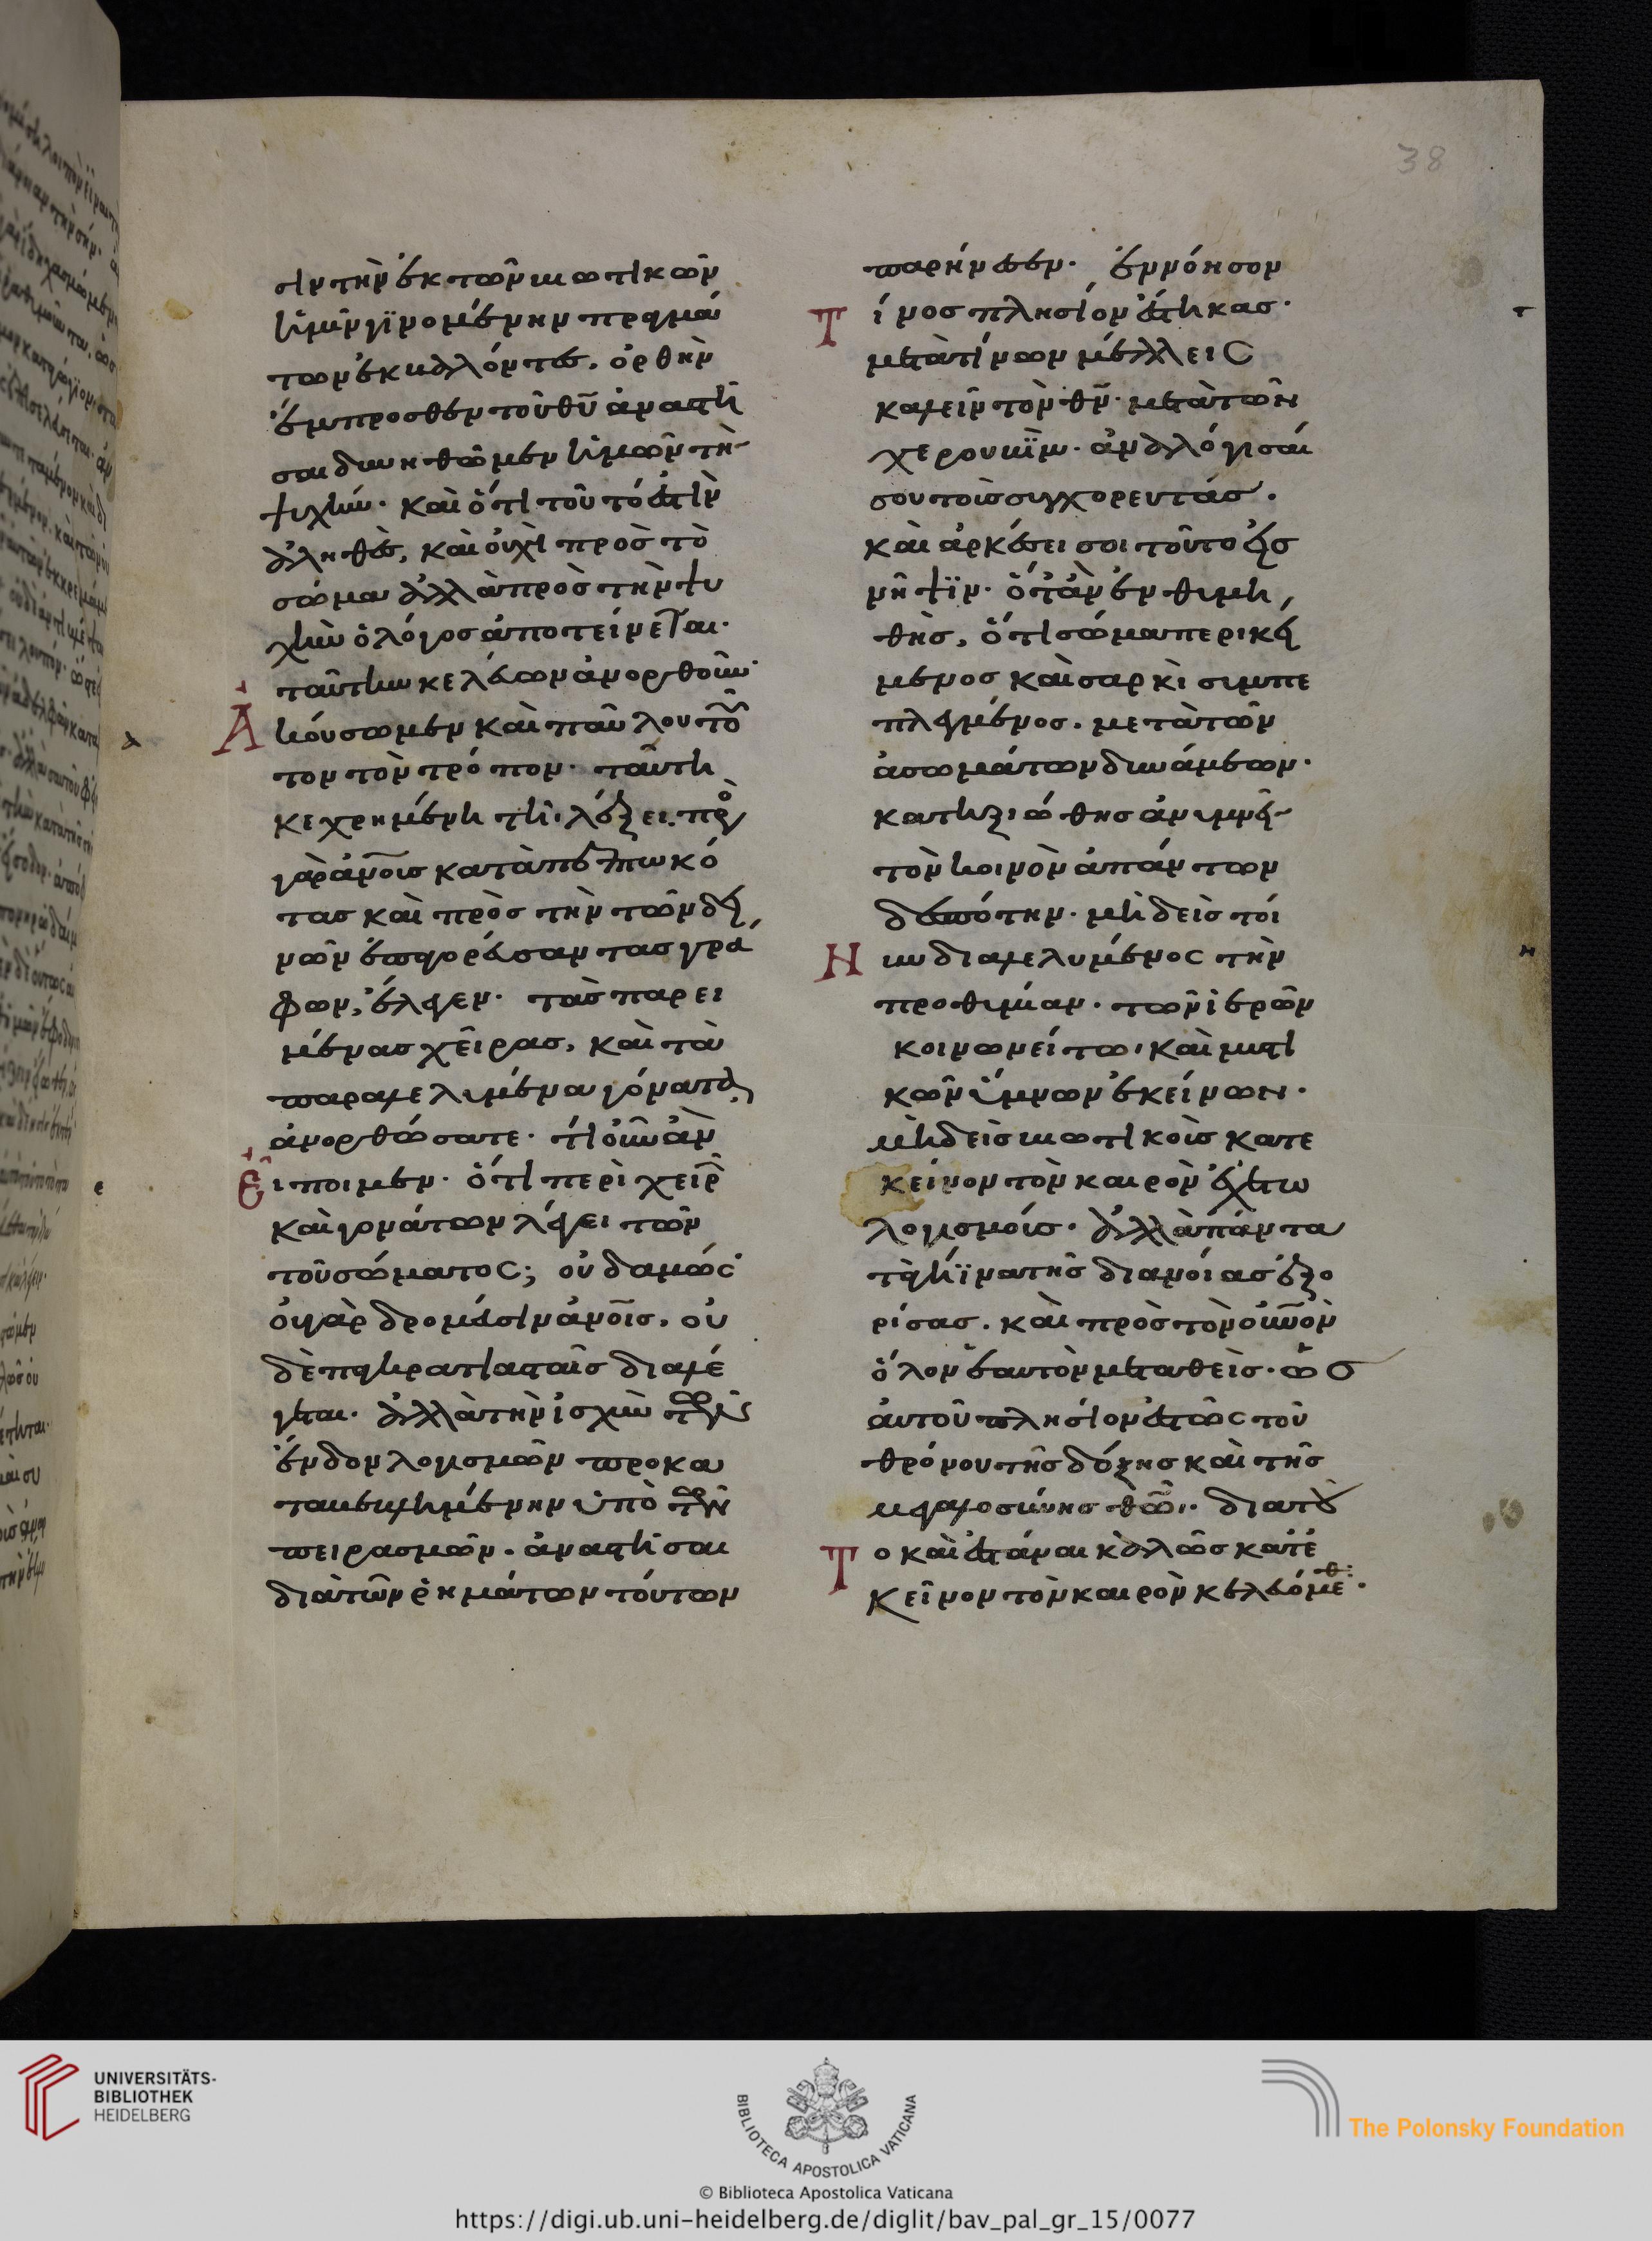 38
σιν τὴν ἐκ τῶν βιωτικῶν
ἡμῖν γϊνομένην πραγμά
των ἐκβαλόντες, ὀρθὴν
ἔμπροσθεν τοῦ θῦ ἀναστῆ
σαι δυνηθῶμεν ἡμῶν τὴ
ψυχήν. καὶ ὅτι τοῦτό ἐστιν
ἀληθὲς, καὶ οὐχὶ πρὸς τὸ
σῶμα ἀλλὰ πρὸς τὴν ψυ
χὴν ὁ λόγος ἀποτείνεται.
ταύτην κελεύων ἀνορθοῦν.
Ἀ κούσωμεν καὶ παύλου τοῦ
τον τὸν τρόπον. ταύτη
κεχρημένη τῆ λέξει. πρὸ
γὰρ ἀνοις καταπεπτωκό
τας καὶ πρὸς τὴν τῶν δει
νῶν ἐπαγορεύσαντας γρά
φων, ἔλεγεν. τὰς παρει
μένας χεῖρας, καὶ τὰ
παραλελυμένα γόνατα
ἀνορθώσατε. τί οὖν ἂν
Ε ἴποιμεν. ὅτι περὶ χειρ
καὶ γονάτων λέγει τῶν
τοῦ σώματος; οὐδαμῶς
οὐ γὰρ δρομεῦσιν ἀνοις. οὐ
δὲ πυκρατιασταῖς διαλέ
γεται. ἀλλὰ τὴν ἰσχὺν τῶν
ἔνδον λογισμῶν προκα
ταβεβλημένην ὑπὸ τῶν
πειρασμῶν. ἀναστῆσαι
διὰ τῶν ῥημάτων τούτων
παρήνεσεν. ἐννόησον
Τ ίνος πλησίον ἕστηκας.
μετὰ τίνων μέλλεις
καλεῖν τὸν θν. μετὰ τῶν
χερουβϊμ. ἀναλόγισαί
σου τοὺς συγχορευτάς.
καὶ ἀρκέσει σοι τοῦτο εἰς
νῆψϊν. ὅταν ἐνθυμη
θῆς, ὅτι σῶμα περικεί
μενος καὶ σαρκὶ συμπε
πλεγμένος. μετὰ τῶν
ἀσωμάτων δυνάμεων.
κατηξιώθης ἀνυμνεῖ
τὸν κοινὸν ἁπάντων
δεσπότην. μηδεὶς τοί
Ν υν διαλελυμένος τὴν
προθυμίαν. τῶν ἱερῶν
κοινωνείτω. καὶ μυστι
κῶν ὕμνων ἐκείνων.
μηδεὶς βιωτικοὺς κατε
κεῖνον τὸν καιρὸν ἐχέτω
λογισμούς. ἀλλὰ πάντα
τὰ γήϊνα τῆς διανοίας ἐξο
ρίσας. καὶ πρὸς τὸν οὐνὸν
ὅλον ἑαυτὸν μεταθεὶς. ὡς
αὐτοῦ πλησίον ἑστὼς τοῦ
θρόνου τῆς δόξης καὶ τῆς
μεγαλοσύνης θῶ. διατοῦ
Τ ο καὶ ἑστάναι καλῶς κατέ
κεῖνον τὸν καιρὸν κελευόμεθ.
τ
α
ε
н
UNIVERSITÄTS-
BIBLIOTHEK
HEIDELBERG
BIBLIOTECA APOSTOLICA VATICANA
The Polonsky Foundation
© Biblioteca Apostolica Vaticana
https://digi.ub.uni-heidelberg.de/diglit/bav_pal_gr_15/0077